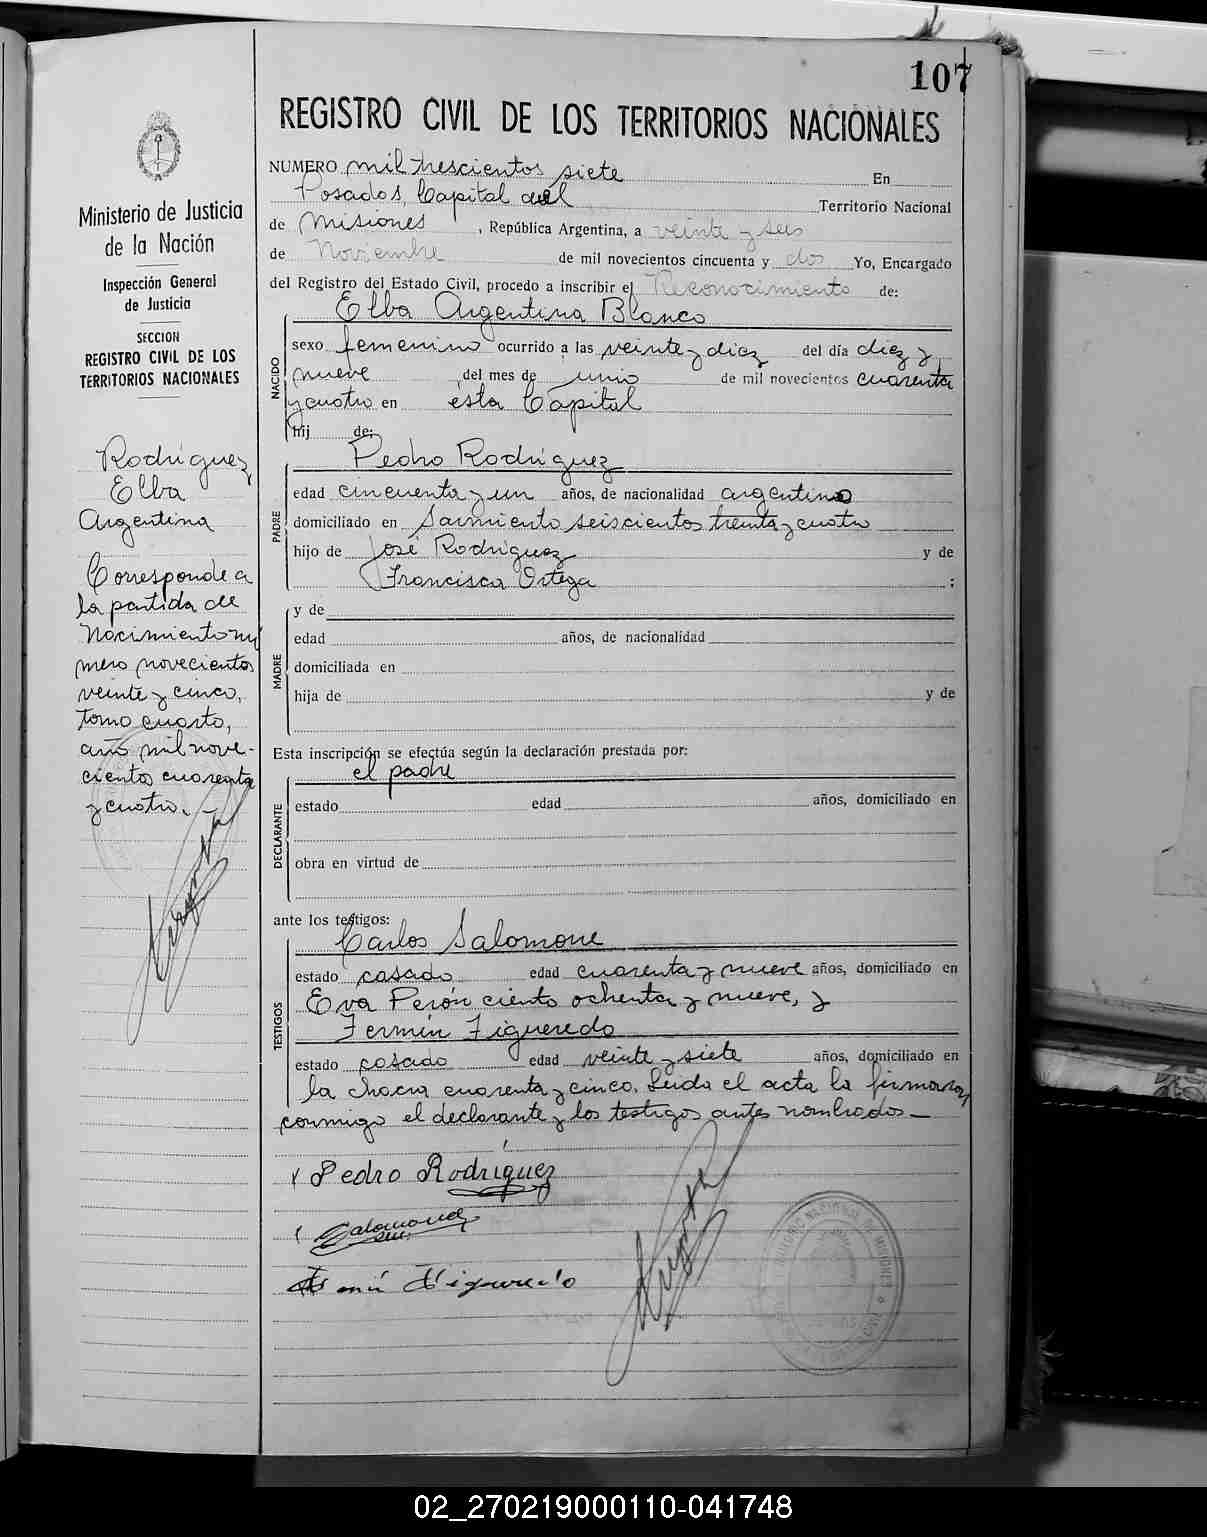 107
REGISTRO CIVIL DE LOS TERRITORIOS NACIONALES
NUMERO mil trescientos siete En
Posadas, Capital del Territorio Nacional
de Misiones, República Argentina, a veinte y seis
de Noviembre de mil novecientos cincuenta y dos Yo, Encargado
del Registro del Estado Civil, procedo a inscribir el Reconocimiento de:
NACIDO
Elba Argentina Blanco
sexo femenino ocurrido a las veinte y diez del día diez y
nueve del mes de junio de mil novecientos cuarenta
y cuatro en esta Capital
hij de:
PADRE
Pedro Rodríguez
edad cincuenta y un años, de nacionalidad argentino
domiciliado en Sarmiento seiscientos treinta y cuatro
hijo de José Rodríguez y de
Francisca Ortega ;
MADRE
y de
edad años, de nacionalidad
domiciliada en
hija de y de
Esta inscripción se efectúa según la declaración prestada por:
DECLARANTE
el padre
estado edad años, domiciliado en
obra en virtud de
ante los testigos:
TESTIGOS
Carlos Salomone
estado casado edad cuarenta y nueve años, domiciliado en
Eva Perón ciento ochenta y nueve, y
Fermín Figueredo
estado casado edad veinte y siete años, domiciliado en
la chacra cuarenta y cinco. Leída el acta la firmaron
conmigo el declarante y los testigos antes nombrados.—
Pedro Rodriguez
Salomone
Figueredo
Ministerio de Justicia
de la Nación
Inspección General
de Justicia
SECCION
REGISTRO CIVIL DE LOS
TERRITORIOS NACIONALES
Rodríguez
Elba
Argentina
Corresponde a
la partida de
Nacimiento nú
mero novecientos
veinte y cinco,
tomo cuarto,
año mil nove-
cientos cuarenta
y cuatro.—
02_270219000110-041748